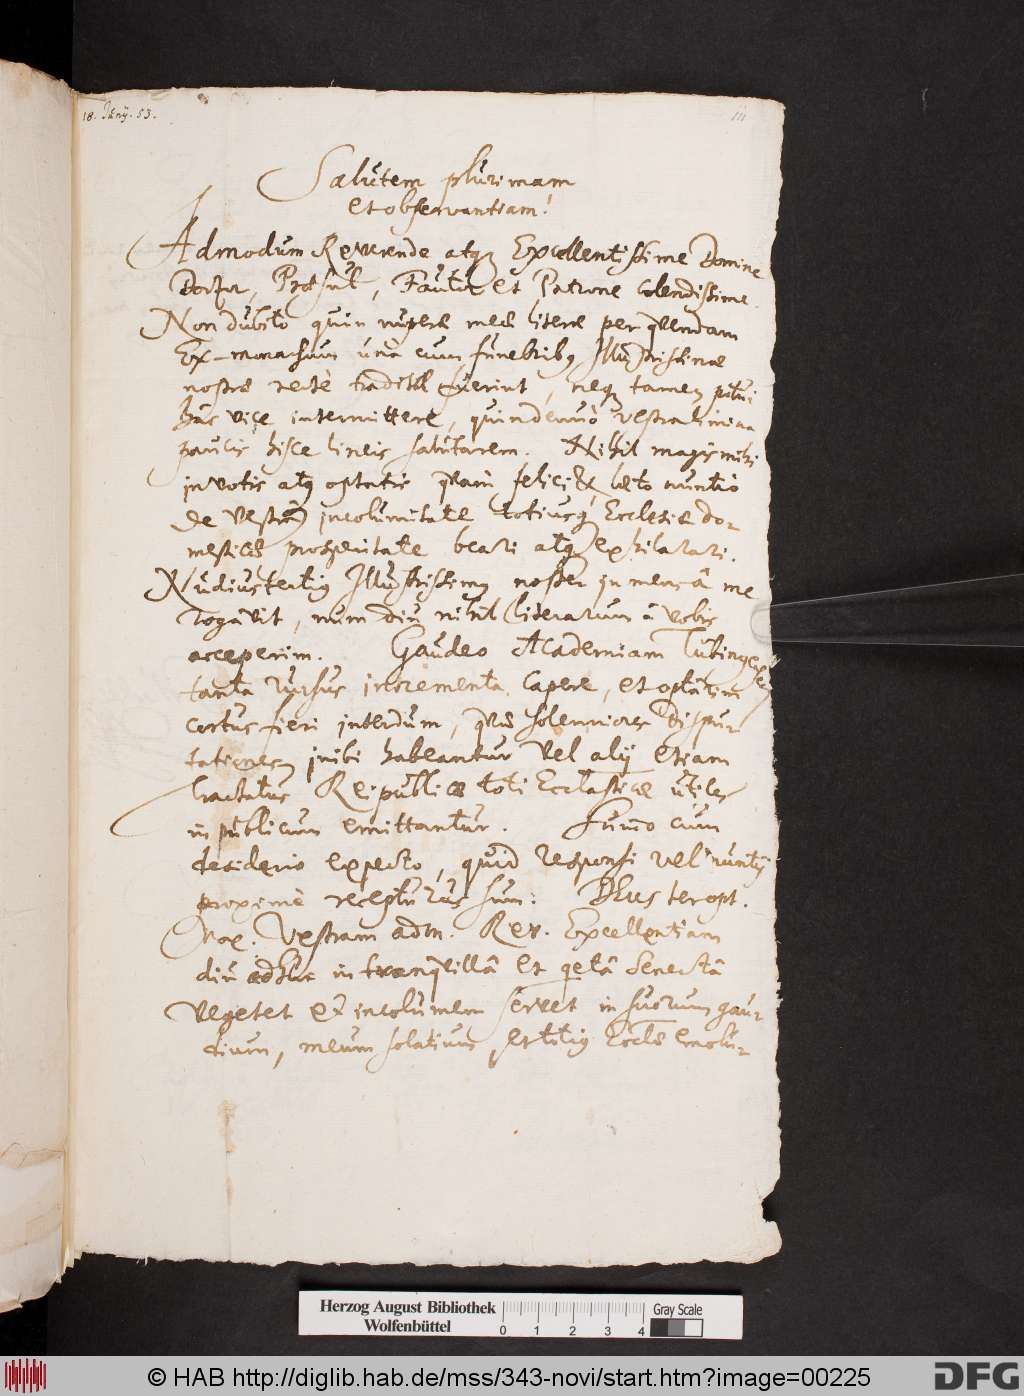 18. Junij. 53.
111
Salutem plurimam
et observantiam!
Admodum Reverende atq Excellentissime Domine
Doctor, Præsul, Fautor et Patrone Colendissime.
Non dubito quin nuperæ meæ literæ per quendam
Ex-monachum unà cum funebribq Illustrissimæ
nostræ rectè traditæ fuerint, neq tamen potui
hac vice intermittere, quin denuò vestra limina
paucis hisce lineis salutarem. Nihil magis mihi
in votis atq optatis quàm felici & læto nuntio
de vestra incolumitate totiusq Ecclesiæ do-
mesticæ prosperitate beari atq exhilarari.
Nudiustertiq Illustrissimq noster in mensâ me
rogavit, num diu nihil literarum à vobis
acceperim. Gaudeo Academiam Tubingensem
tanta rursus incrementa capere, et optarim
certus fieri interdum, quæ solenniores Dispu-
tationes inibi habeantur vel alij etiam
tractatus Reipublicæ toti Ecclasticæ utiles
in publicum emittantur. Sum̅o cum
desiderio expecto, quid responsi vel nuntij
proximè recepturus sum: DEus ter opt.
Max. Vestram adm. Rev. Excellentiam
diu adhuc in tranquillâ et qetâ Senectâ
vegetet et incolumem servet in suorum gau-
dium, meum solatium, et totiq Eccles emolu-
Herzog August Bibliothek
Wolfenbüttel
0 1 2 3 4
Gray Scale
© HAB http://diglib.hab.de/mss/343-novi/start.htm?image=00225
DFG